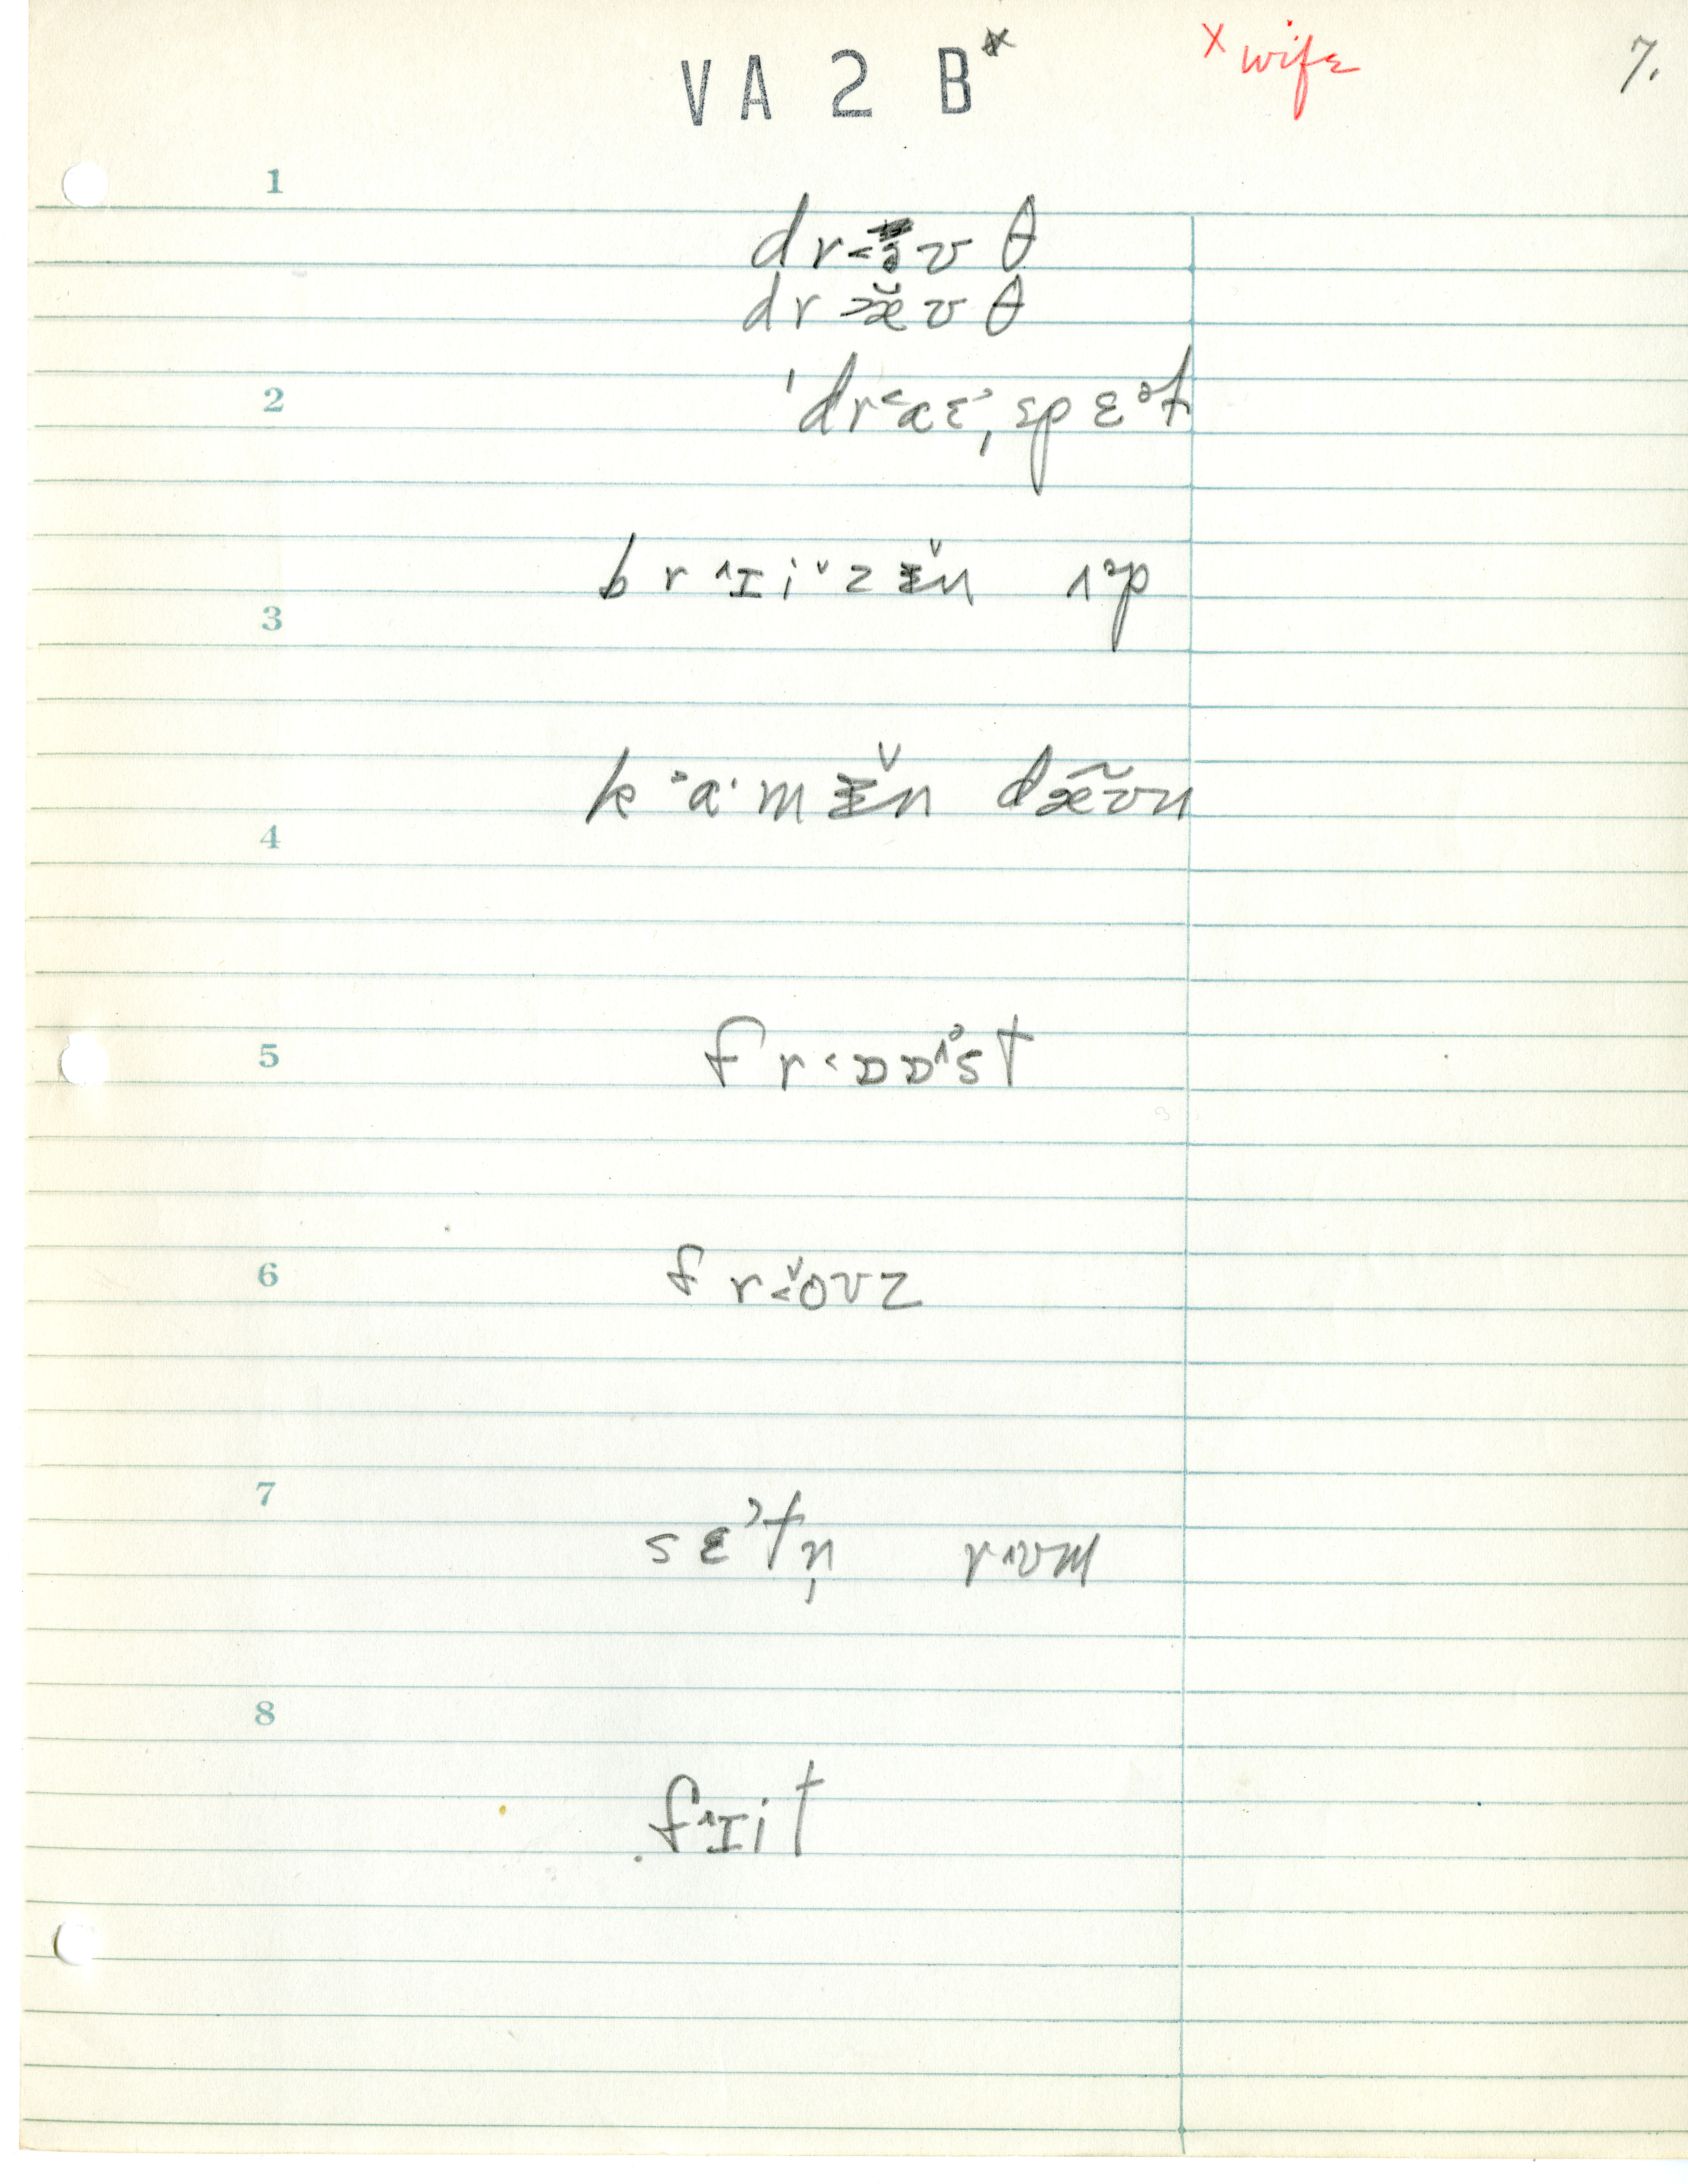 VA 2 B* × wife 7.
1
dr˂ɜʊ θ
dr˃æ̆ʊ θ
2 ˈdr˂aɛ˒ˌspɛ˒t
br˄ɪi˅zɪ̌n ˄˒p
3
k˒ɑ·mɪ̌n dæ̃ʊn
4
5 fr˂ɒɒ˄˒st
6 fr˂̌oʊz
7
sɛ˒tn̩ r˄ʊm
8
f˄ɪit